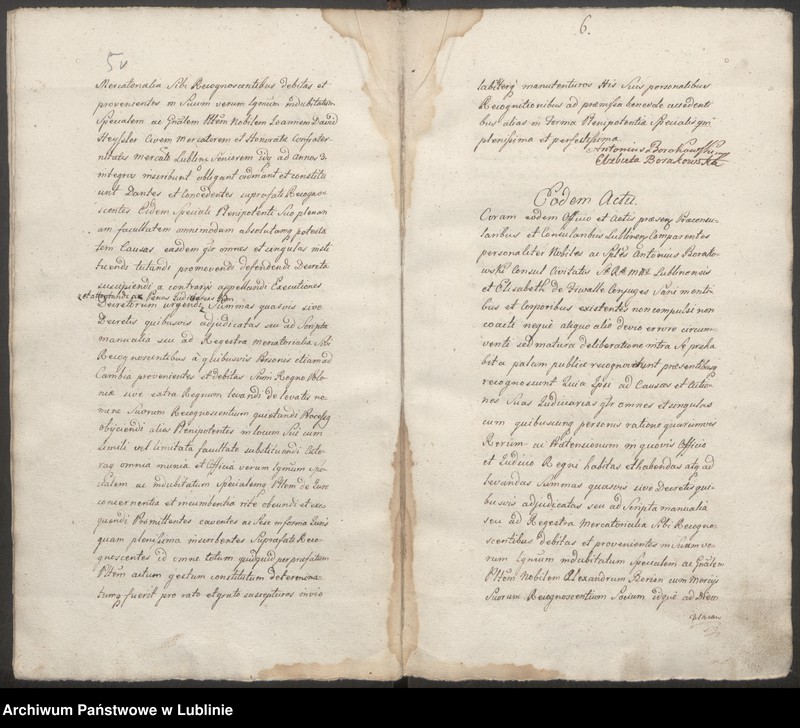 5v
Mercatorialia Sibi Recognoscentibus debitas et
provenientes in Suum verum Lgnum indubitatum
Specialem ac Gnalem Plltem Nobilem Joannem David
Heysler Civem Mercatorem et Honoratæ Confrater
nitatis Mercato Lublin Seniorem idq ad Annos 3
integros inscribunt obligant
unt Dantes et Concedentes suprafati Recogno
scentes Eidem Speciali Plenipotenti Suo plenam
am facultatem omnimodam absolutamq potesta
tem Causas easdem qtr omnes et singulas insti
tuendi tutandi promovendi defendendi Decreta
suscipiendi a contrariis appellandi Executiones
Decretorum urgendi Summas quasvis sive
Decretis quibusvis adjudicatas seu ad Scripta
manualia seu ad Regestra Mercatorialia Sibi
Recognoscentibus à quibusvis Personis etiam ad
Cambia provenientes et debitas Seu in Regno Polo
niæ sive extra Regnum levandi de levatis no
mine Suorum Recognoscentium quietandi Process
objiciendi alios Plenipotentes in locum Sui cum
simili vel limitata facultate substituendi Cæte
raq omnia munia et Officia verum Lgnum Spe
cialem ac indubitatum Specialemq Plltem de Jure
concernentia et incumbentia rite obeundi et exe
quendi Promittentes caventes ac Sese in forma Juris
quam plenissima inscribentes Suprafati Reco
gnoscentes id omne totum quidquid per præfatum
Plltem actum gestum constitutum determina
tumq fuerit pro rato et grato suscepturos invio
6.
labiterq manuteneturos His Suis personalibus
Recognitionibus ad præmissa benevole accedenti
bus alias in Forma Plenipotentiæ Specialis qm
plenissima et perfectissima
Antonius Borakowski
Elzbieta Borakowska
Eodem Actu.
Coram eodem Officio et Actis præsen Proconsu
laribus et Consularibus Lublinen Comparentes
personaliter Nobiles ac Sples Antonius Borako
wski Consul Civitatis S R M Lublinensis
et Elisabeth de Diwalle Conjuges Sani menti
bus et Corporibus existentes non compulsi non
coacti neque aliquo alio devio errore circum
venti sed matura deliberatione intra Se præha
bita palam publice recognoverunt præsentibusq
recognoscunt Quia Ipsi ad Causas et Actio
nes Suas Judiciarias qtr omnes et singulas
cum quibuscunq personis ratione quarumvis
Rerum ac Prætensionum in quovis Officio
et Judicio Regni habitas et habendas atq ad
levandas Summas quasvis sive Decretis qui
busvis adjudicatas seu ad Scripta manualia
seu ad Regestra Mercatorialia Sibi Recogno
scentibus debitas et provenientes in Suum ve
rum Lgnum indubitatum Specialem ac Gnalem
Plltem Nobilem Alexandrum Berien
Suorum Recognoscentium Socium idque ad Diem
Archiwum Państwowe w Lublinie